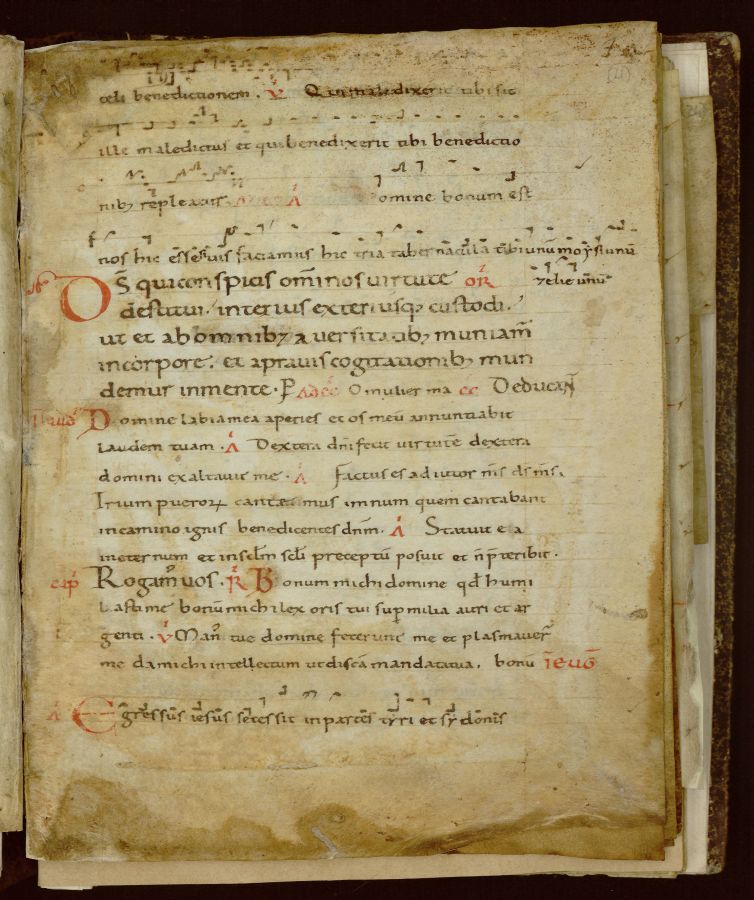 celi benedictionem . V Qui maledixerit tibi sit
ille maledictus et qui benedixerit tibi benedictio
nib; repleatur. A omine bonum est
nos hic esse si uis faciamus hic tria tabernacula tibi unum moysi unu
OR
D s qui conspicis om̄i nos uirtute & elie unū
destitui . interius exteriusq; custodi .
ut et ab omnib; aduersitatib; muniam̄
in corpore . et a prauis cogitationib; mun
demur in mente . O mulier ma Deducan̄
D omine labia mea aperies et os meū annuntiabit
laudem tuam . A Dextera dn̄i fecit uirtutē dextera
domini exaltauit me . A Factus es adiutor m̄s ds m̄s .
Trium pueror̄ cantemus imnum quem cantabant
in camino ignis benedicentes dn̄m . A Statuit ea
in eternum et in sclm̄ scli preceptū posuit et n̄ p̄teribit .
cap̄ Rogam̄ uos . R̄ Bonum michi domine qd̄ humi
liasti me bonū michi lex oris tui sup̄ milia auri et ar
genti . V Man̄ tue domine fecerunt me et plasmauer̄
me da michi intellectum ut discā mandata tua . bonū
A Egressus iesus secessit in partes tyri et sydonis